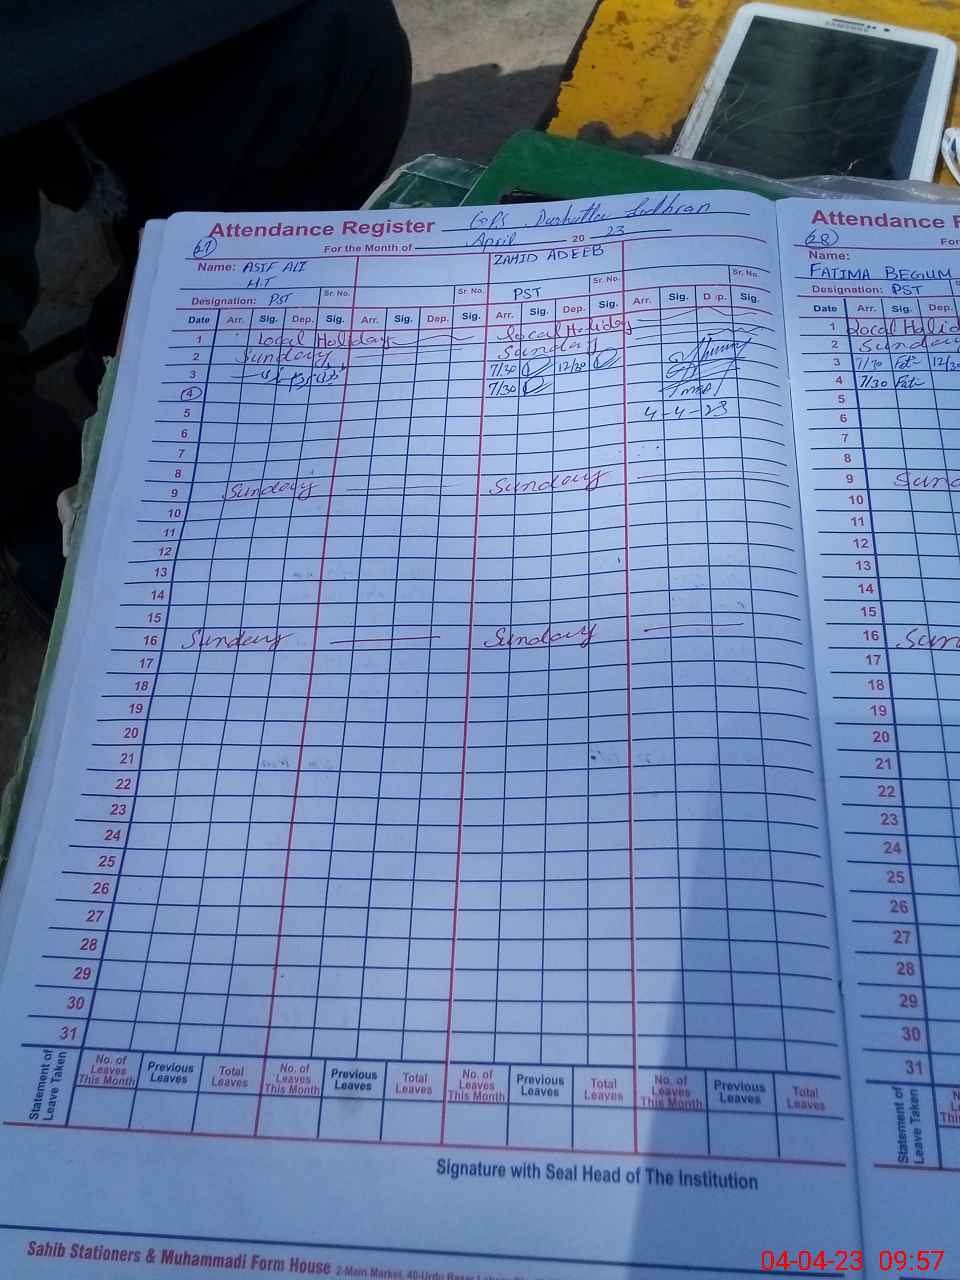 SAMSUNG
Attendance Register Lodhran
(27) For the Month of April 20 23
Name: ASIF ALI ZAHID ADEEB
H.T
Sr. No. Sr. No. Sr. No. Sr. No.
Designation: PST PST
Date Arr. Sig. Dep. Sig. Arr. Sig. Dep. Sig. Arr. Sig. Dep. Sig. Arr. Sig. D p. Sig.
1 Local Holiday Local Holiday
2 Sunday Sunday
3 7/30 12/30
4 7/30
5 4-4-23
6
7
8
9 Sunday Sunday
10
11
12
13
14
15
16 Sunday Sunday
17
18
19
20
21
22
23
24
25
26
27
28
29
30
31
Statement of Leave Taken
No. of Leaves This Month Previous Leaves Total Leaves No. of Leaves This Month Previous Leaves Total Leaves No. of Leaves This Month Previous Leaves Total Leaves No. of Leaves This Month Previous Leaves Total Leaves
Signature with Seal Head of The Institution
Sahib Stationers & Muhammadi Form House 2-Main Market, 40-Urdu Bazar
Attendance
(28) For
Name:
FATIMA BEGUM
Designation: PST
Date Arr. Sig. Dep.
1 Local Holid
2 Sunday
3 7/30 12/30
4 7/30
5
6
7
8
9 Sund
10
11
12
13
14
15
16 Sun
17
18
19
20
21
22
23
24
25
26
27
28
29
30
31
Statement of Leave Taken
04-04-23 09:57